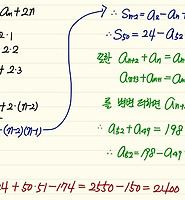 aₙ+2n
2·1
2·2
+2·3
+2·(n-2)
(n-2)(n-1)
∴ Sₙ₋₂ = a₂ - aₙ +
∴ S₅₀ = 24 - a₅₂
aₙ₊₂ + aₙ =
aₙ₊₃ + aₙ₊₁ =
를 변변 더하면
∴ a₅₂ + a₄₉ = 198
∴ a₅₂ = 198 - a₄₉
24 + 50·51 - 174 = 2550 - 150 = 2400